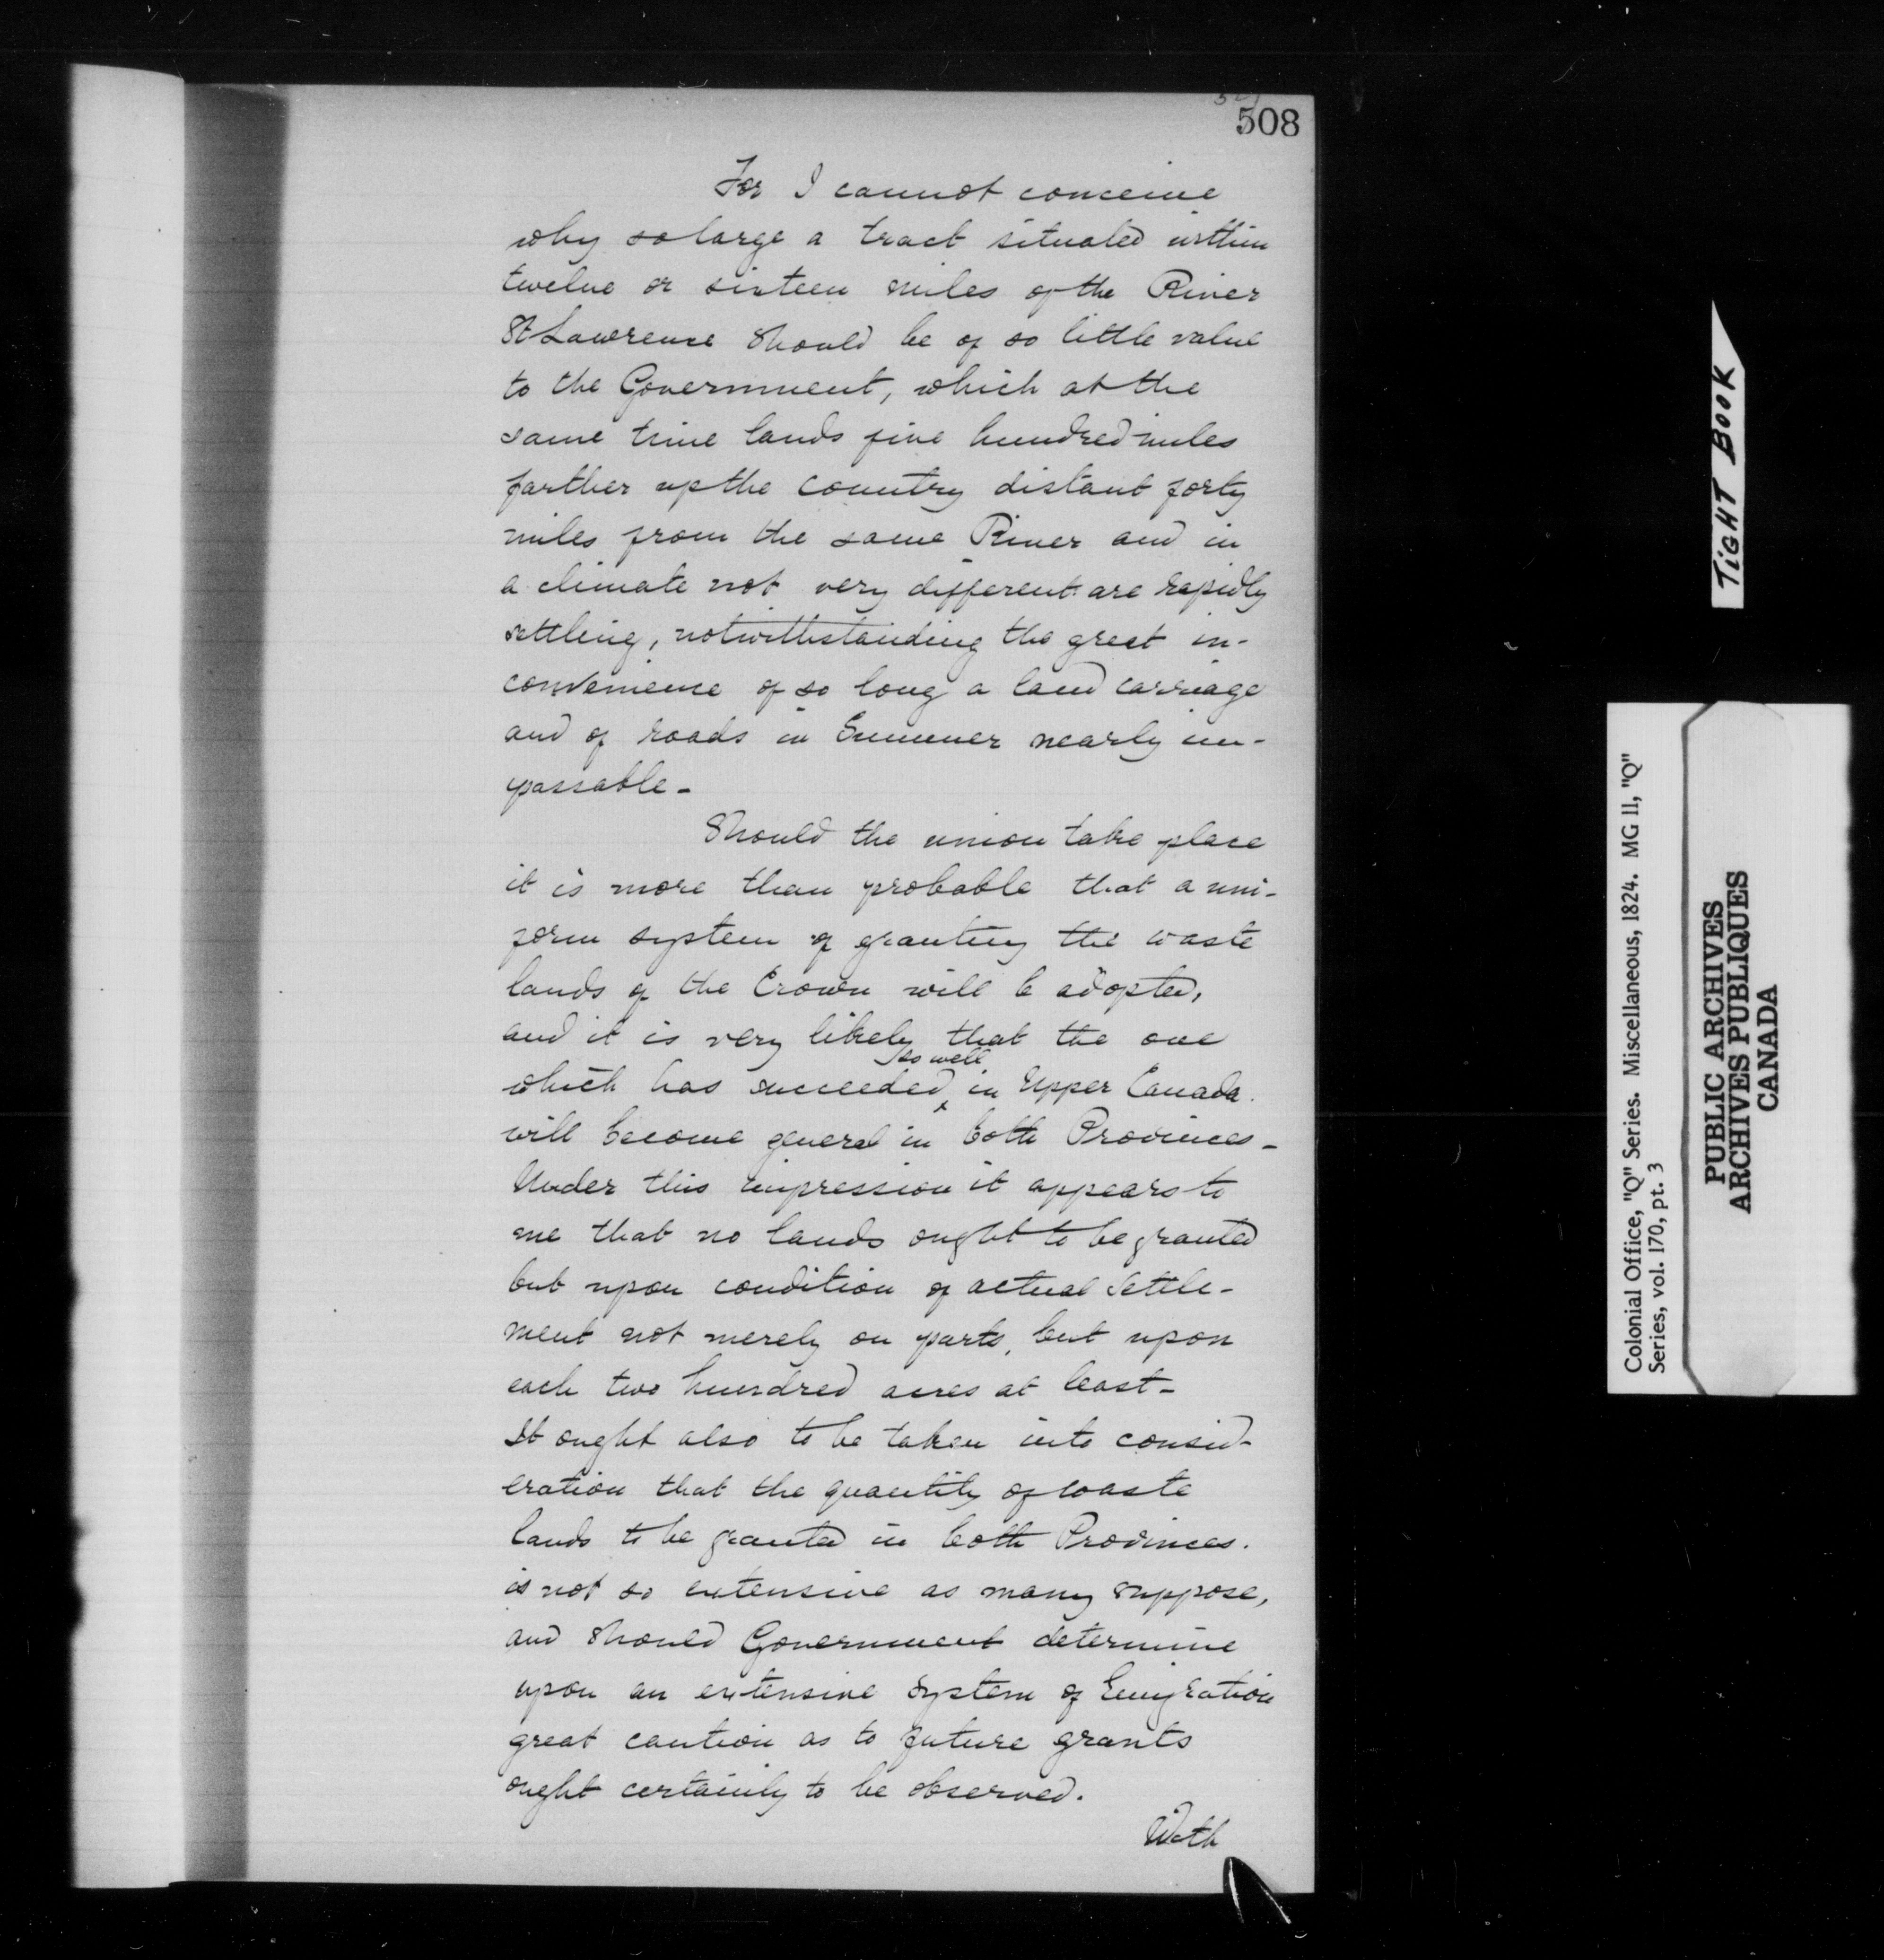 508
For I cannot conceive
why so large a tract situated within
twelve or sixteen miles of the River
St Lawrence should be of so little value
to the Government, which at the
same time lands five hundred miles
farther up the country distant forty
miles from the same River and in
a climate not very different are rapidly
settling, notwithstanding the great in-
convenience of so long a land carriage
and of roads in Summer nearly im-
passable -
Should the union take place
it is more than probable that a uni-
form system of granting the waste
lands of the Crown will be adopted,
and it is very likely that the one
which has succeeded so well in Upper Canada.
will become general in both Provinces -
Under this impression it appears to
me that no lands ought to be granted
but upon condition of actual Settle-
ment not merely on parts, but upon
each two hundred acres at least -
It ought also to be taken into consid-
eration that the quantity of waste
lands to be granted in both Provinces.
is not so extensive as many suppose,
and should Government determine
upon an extensive system of Emigration
great caution as to future grants
ought certainly to be observed.
With
TIGHT BOOK
Colonial Office, "Q" Series. Miscellaneous, 1824. MG 11, "Q"
Series, vol. 170, pt. 3
PUBLIC ARCHIVES
ARCHIVES PUBLIQUES
CANADA